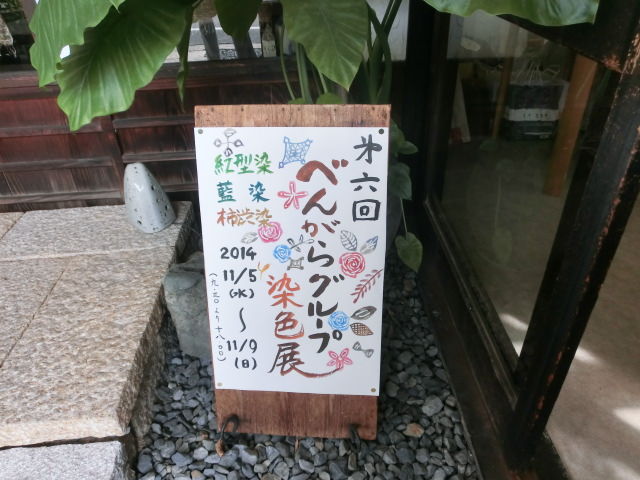 㐧六回
べんがらグループ
染色展
紅型染
藍染
柿渋染
2014
11/5
(水)
〜
11/9
(日)
(九・三〇より十八・〇〇)